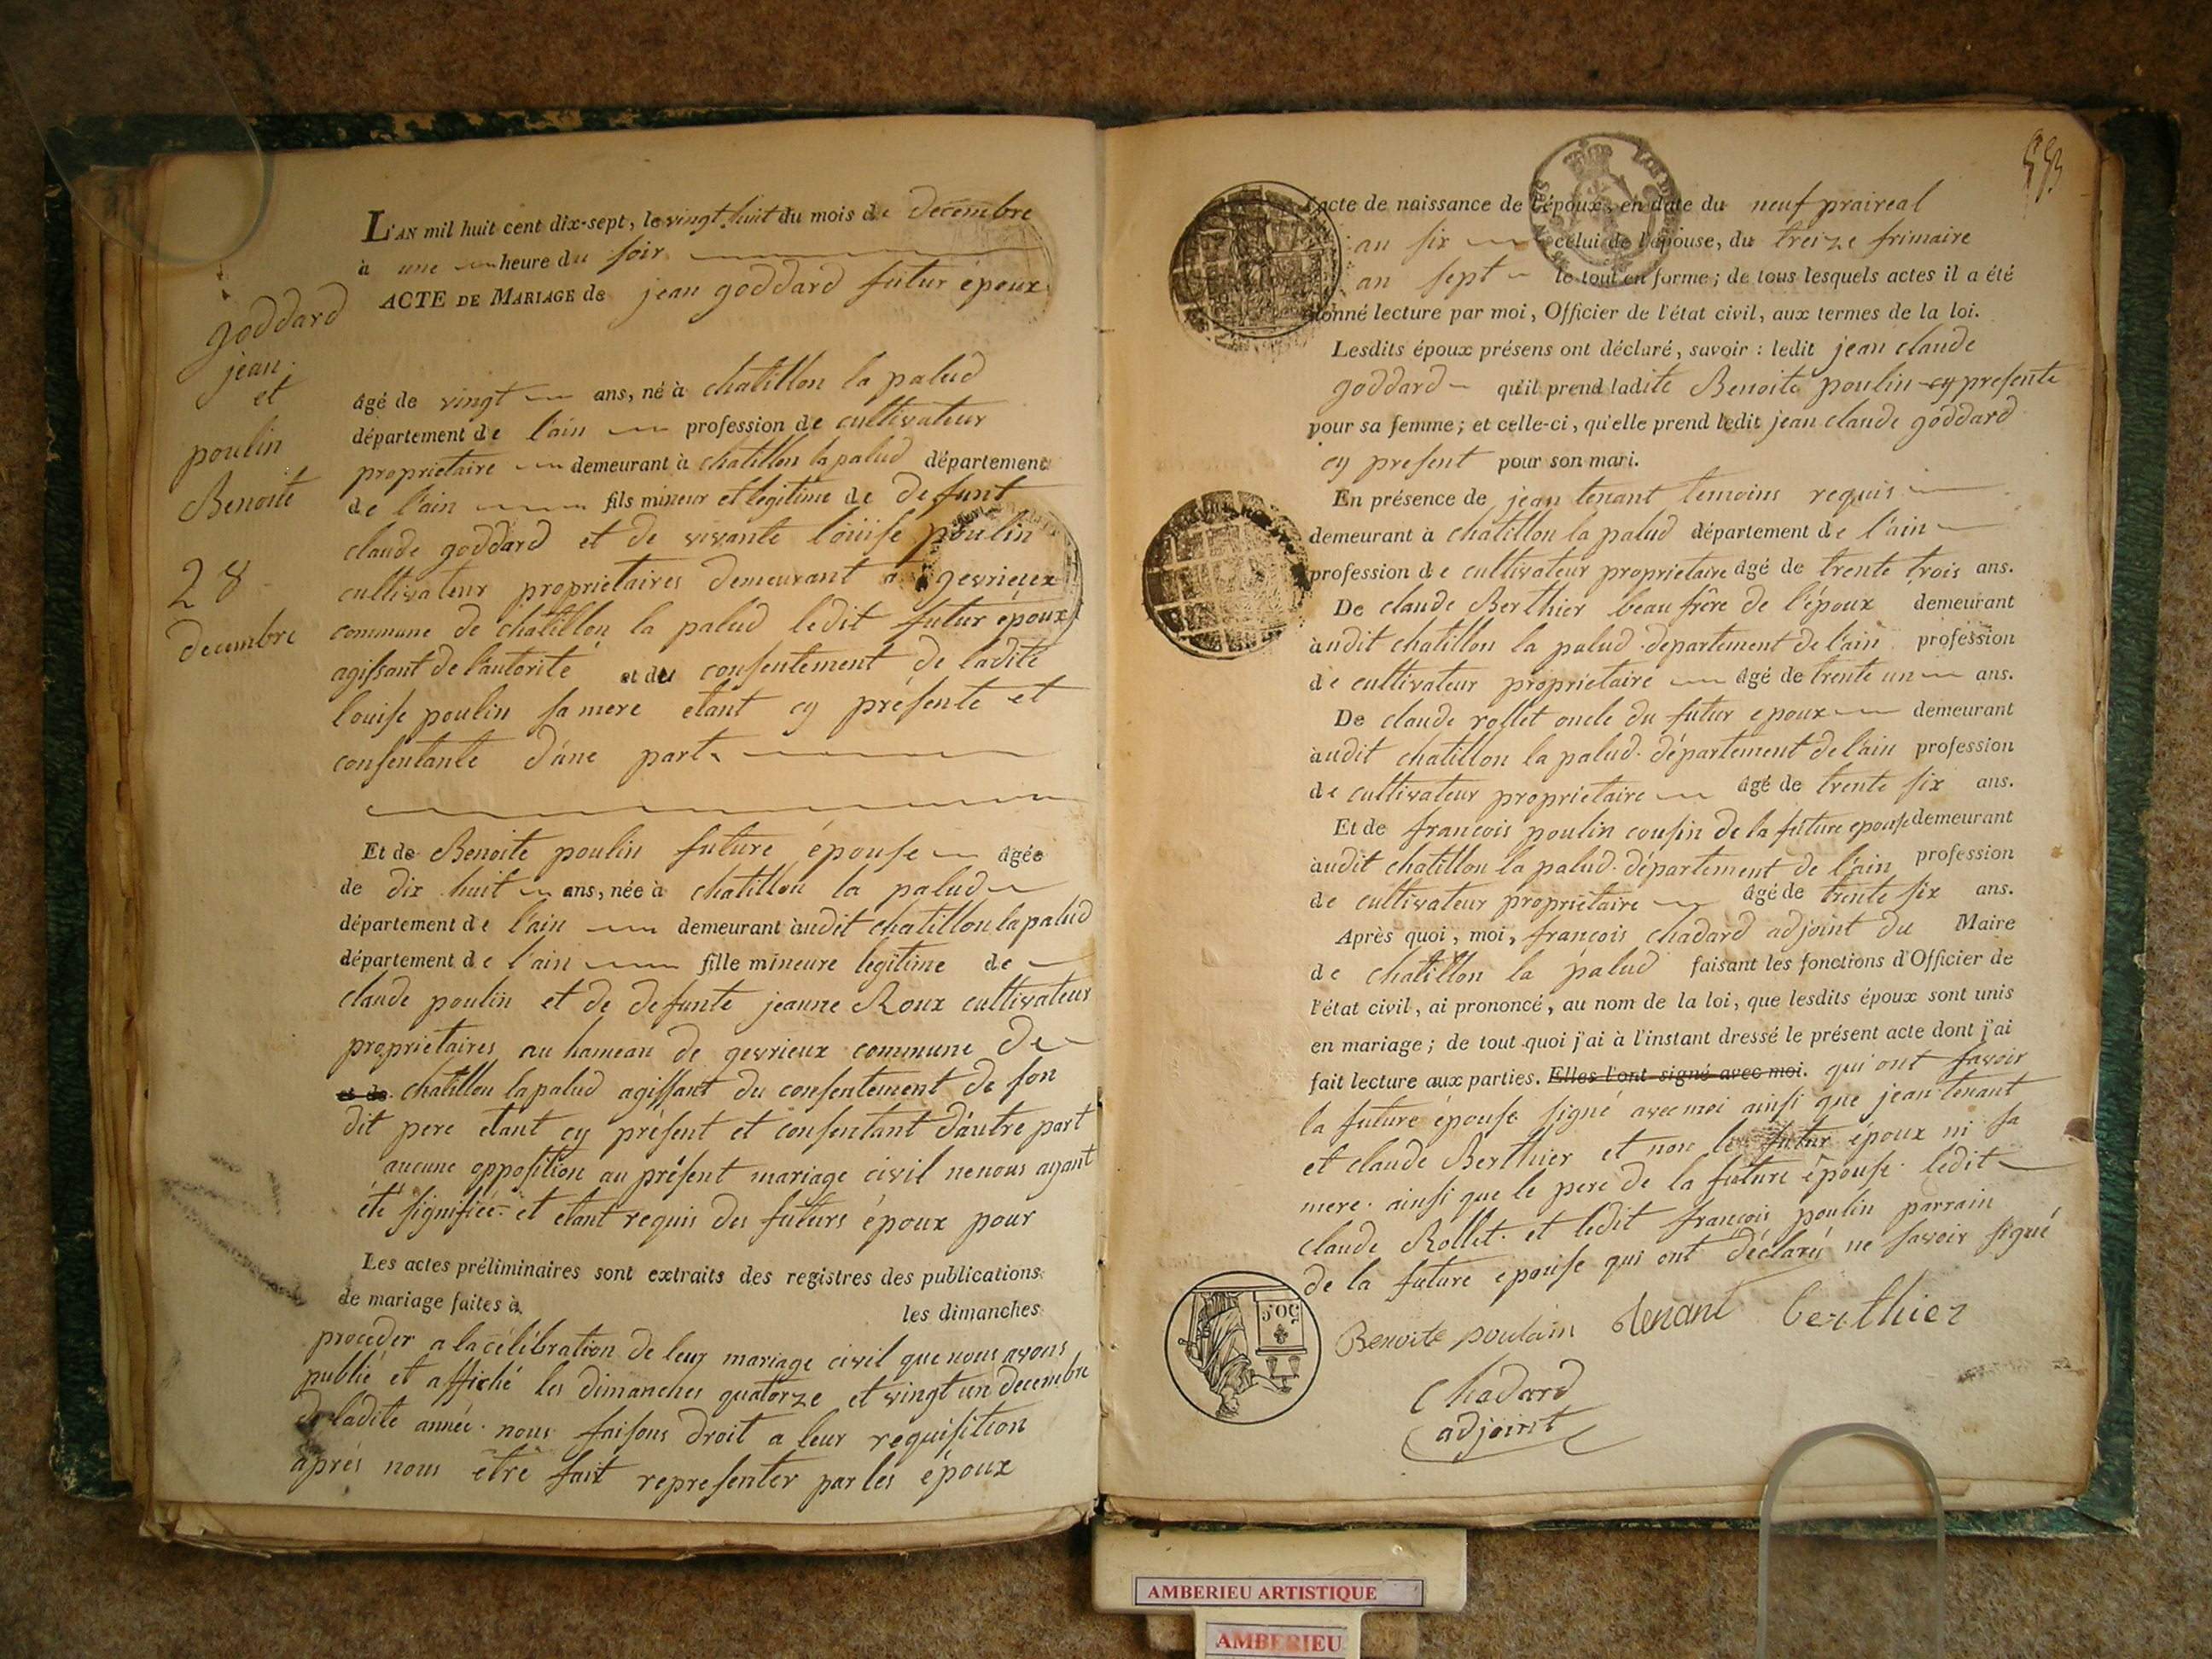 goddard
jean
et
poulin
Benoite
28
decembre
L'AN mil huit cent dix-sept, le vingt huit du mois de decembre
à une heure du soir
ACTE DE MARIAGE de jean goddard futur époux
âgé de vingt ans, né à chatillon la palud
département de l'ain profession de cultivateur
proprietaire demeurant à chatillon la palud département
de l'ain fils mineur et legitime de defunt
claude goddard et de vivante louise poulin
cultivateur proprietaires demeurant a gevrieux
commune de chatillon la palud ledit futur époux
agissant de l'autorité et du consentement de ladite
louise poulin sa mere etant cy présente et
consentante d'une part
Et de Benoite poulin future épouse âgée
de dix huit ans, née à chatillon la palud
département de l'ain demeurant audit chatillon la palud
département de l'ain fille mineure legitime de
claude poulin et de defunte jeanne Roux cultivateur
proprietaires au hameau de gevrieux commune de
et de chatillon la palud agissant du consentement de son
dit pere etant cy présent et consentant d'autre part
aucune opposition au présent mariage civil ne nous ayant
été signifiée et etant requis des futurs époux pour
Les actes préliminaires sont extraits des registres des publications
de mariage faites à les dimanches
proceder a la célébration de leur mariage civil que nous avons
publié et affiché les dimanches quatorze et vingt un decembre
de ladite année nous faisons droit a leur requisition
après nous etre fait representer par les époux
l'acte de naissance de l'époux, en date du neuf praireal
an six celui de l'épouse, du treize frimaire
an sept le tout en forme; de tous lesquels actes il a été
donné lecture par moi, Officier de l'état civil, aux termes de la loi.
Lesdits époux présens ont déclaré, savoir : ledit jean claude
goddard qu'il prend ladite Benoite poulin cy presente
pour sa femme; et celle-ci, qu'elle prend ledit jean claude goddard
cy present pour son mari.
En présence de jean tenant temoins requis
demeurant à chatillon la palud département de l'ain
profession de cultivateur proprietaire âgé de trente trois ans.
De claude Berthier beau frère de l'époux demeurant
audit chatillon la palud departement de l'ain profession
de cultivateur proprietaire âgé de trente un ans.
De claude rollet oncle du futur epoux demeurant
audit chatillon la palud département de l'ain profession
de cultivateur proprietaire âgé de trente six ans.
Et de francois poulin cousin de la future epouse demeurant
audit chatillon la palud département de l'ain profession
de cultivateur proprietaire âgé de trente six ans.
Après quoi, moi, françois chadard adjoint du Maire
de chatillon la palud faisant les fonctions d'Officier de
l'état civil, ai prononcé, au nom de la loi, que lesdits époux sont unis
en mariage; de tout quoi j'ai à l'instant dressé le présent acte dont j'ai
fait lecture aux parties. Elles l'ont signé avec moi. qui ont savoir
la future épouse signé avec moi ainsi que jean tenant
et claude Berthier et non le futur époux ni sa
mere ainsi que le pere de la future épouse ledit
claude Rollet et ledit françois poulin parrain
de la future epouse qui ont déclaré ne savoir signé
Benoite poulain tenant berthier
Chadard
adjoint
50C
AMBERIEU ARTISTIQUE
AMBERIEU